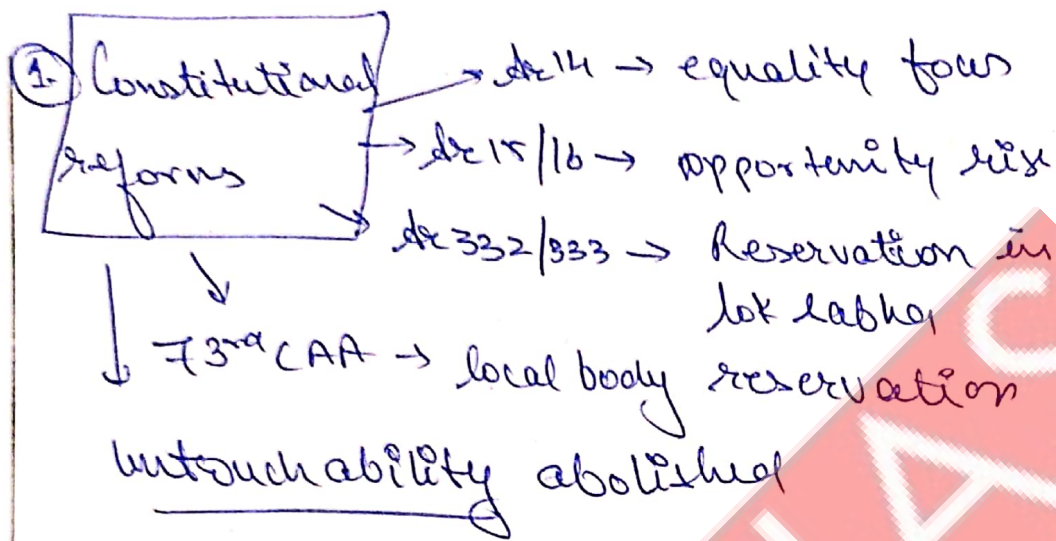 1. Constitutional reforms
→ Ar 14 → equality focus
→ Ar 15/16 → opportunity rise
→ Ar 332/333 → Reservation in
lok sabha
↓ 73rd CAA → local body reservation
untouchability abolished